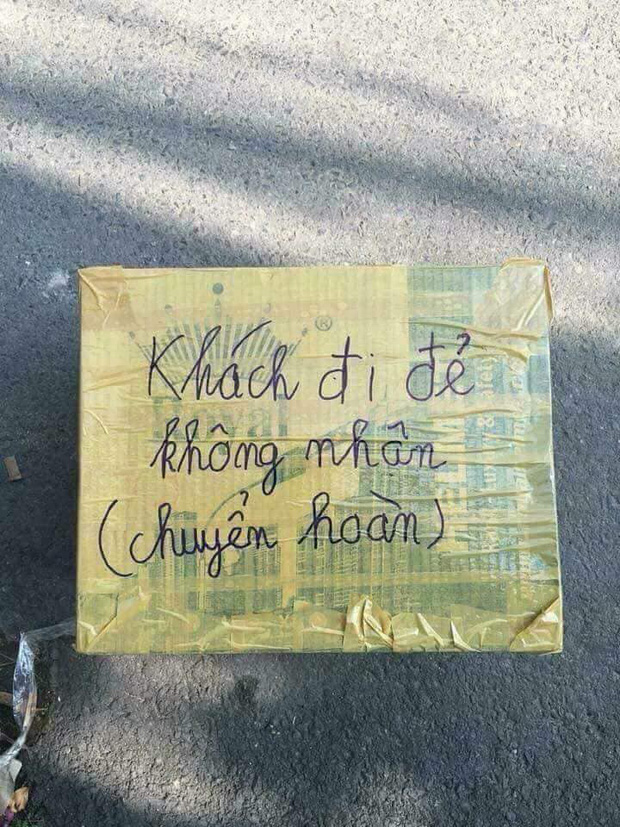 Khách đi đẻ
không nhân
(chuyển hoàn)
®